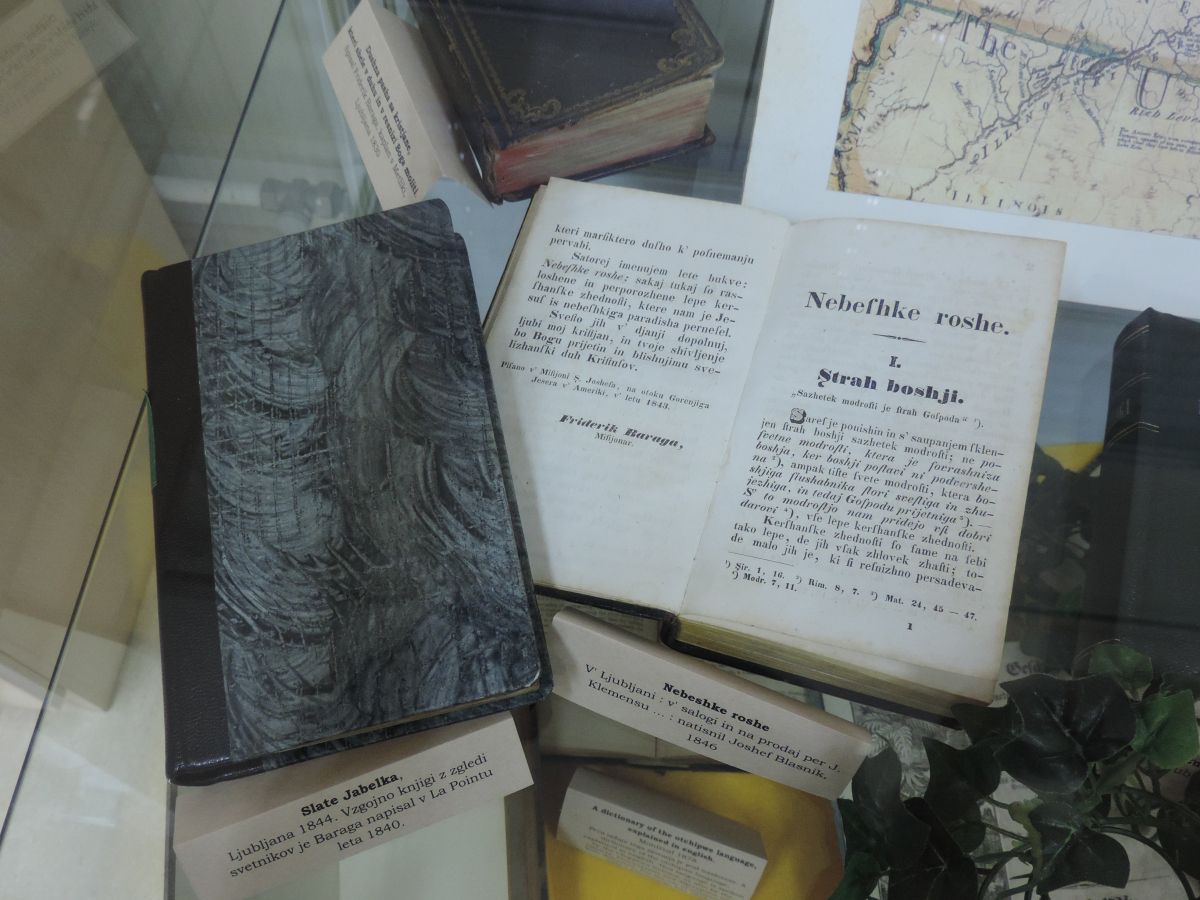 Dushna pasha sa kristjane,
kteri shele v' duhu in v' resnizi Boga moliti.
Ljubljana 1830
The
U
Rich Lev
ILLINOIS
ILLINOIS
kteri marſiktero duſho k' poſnemanju
pervabi.
Satorej imenujem lete bukve:
Nebeſhke roshe; sakaj tukaj ſo ras-
loshene in perporozhene lepe ker-
ſhanſke zhednoſti, ktere nam je Je-
suſ is nebeſhkiga paradisha perneſel.
Sveſto jih v' djanji dopolnuj,
ljubi moj kriſtjan, in tvoje shivljenje
bo Bogu prijetin in blishnjimu sve-
lizhanſki duh Kriſtuſov.
Piſano v' Miſijoni Ş. Joshefa, na otoku Gorenjiga
Jesera v' Ameriki, v' letu 1843.
Friderik Baraga,
Miſijonar.
Nebeſhke roshe.
I.
Ştrah boshji.
„Sazhetek modroſti je ſtrah Goſpoda“ ¹).
Şaref je ponishin in s' saupanjem ſklen-
jen ſtrah boshji sazhetek modroſti; ne po-
ſvetne modroſti, ktera je ſovrashniza
boshja, ker boshji poſtavi ni podvershe-
na ²), ampak tiſte ſvete modroſti, ktera bo-
shjiga ſlushabnika ſtori sveſtiga in zhu-
jezhiga, in tedaj Goſpodu prijetniga ³). —
S' to modroſtjo nam pridejo vſi dobri
darovi ⁴), vſe lepe kerſhanſke zhednoſti.
Kerſhanſke zhednoſti ſo ſame na ſebi
tako lepe, de jih vſak zhlovek zhaſti; to-
de malo jih je, ki ſi reſnizhno persadeva-
¹) Şir. 1, 16. ²) Rim. 8, 7. ³) Mat. 24, 45 — 47.
⁴) Modr. 7, 11.
1
Nebeshke roshe
V' Ljubljani : v' salogi in na prodaj per J.
Klemensu ... : natisnil Joshef Blasnik,
1846
Slate Jabelka,
Ljubljana 1844. Vzgojno knjigi z zgledi
svetnikov je Baraga napisal v La Pointu
leta 1840.
A dictionary of the otchipwe language,
explained in english.
Montreal 1878